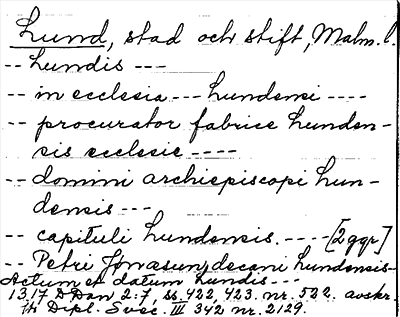 Lund, stad och stift, Malm. l.
-- Lundis ---
-- in ecclesia --- Lundensi ----
-- procurator fabrice Lunden-
sis ecclesie ----
-- domini archiepiscopi Lun-
densis ---
-- capituli Lundensis. ---- [2 ggr]
-- Petri Jonæsun, decani Lundensis
Actum et datum Lundis ---
1317 D Dan 2:7, ss. 422, 423. nr. 522. avskr.
Dipl. Svec. III 342 nr. 2129.